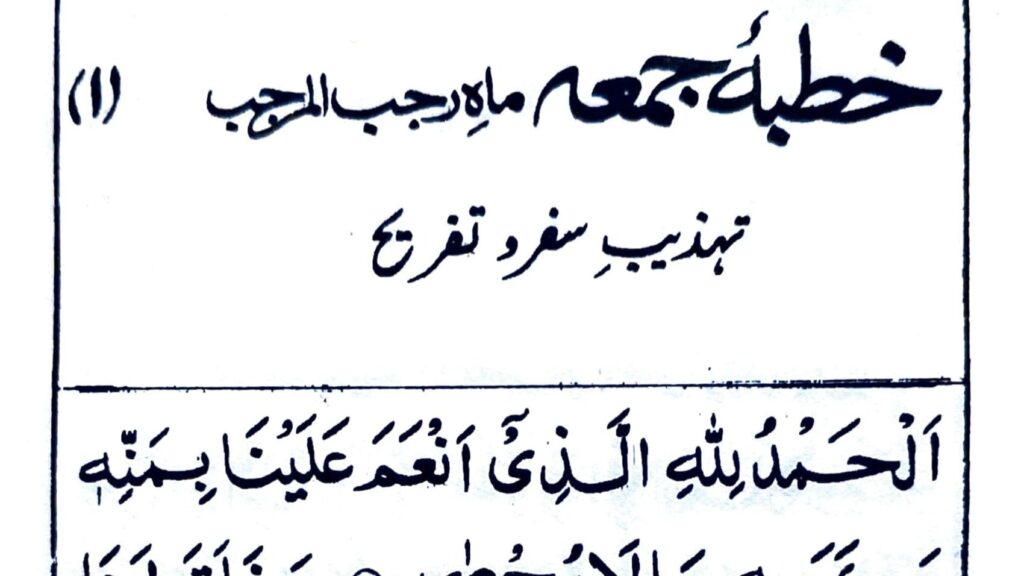 خطبۂ جمعہ ماہِ رجب المرجب (۱)
تہذیبِ سفر و تفریح
اَلْحَمْدُ لِلّٰهِ الَّذِیْٓ اَنْعَمَ عَلَیْنَا بِمَنِّهٖ